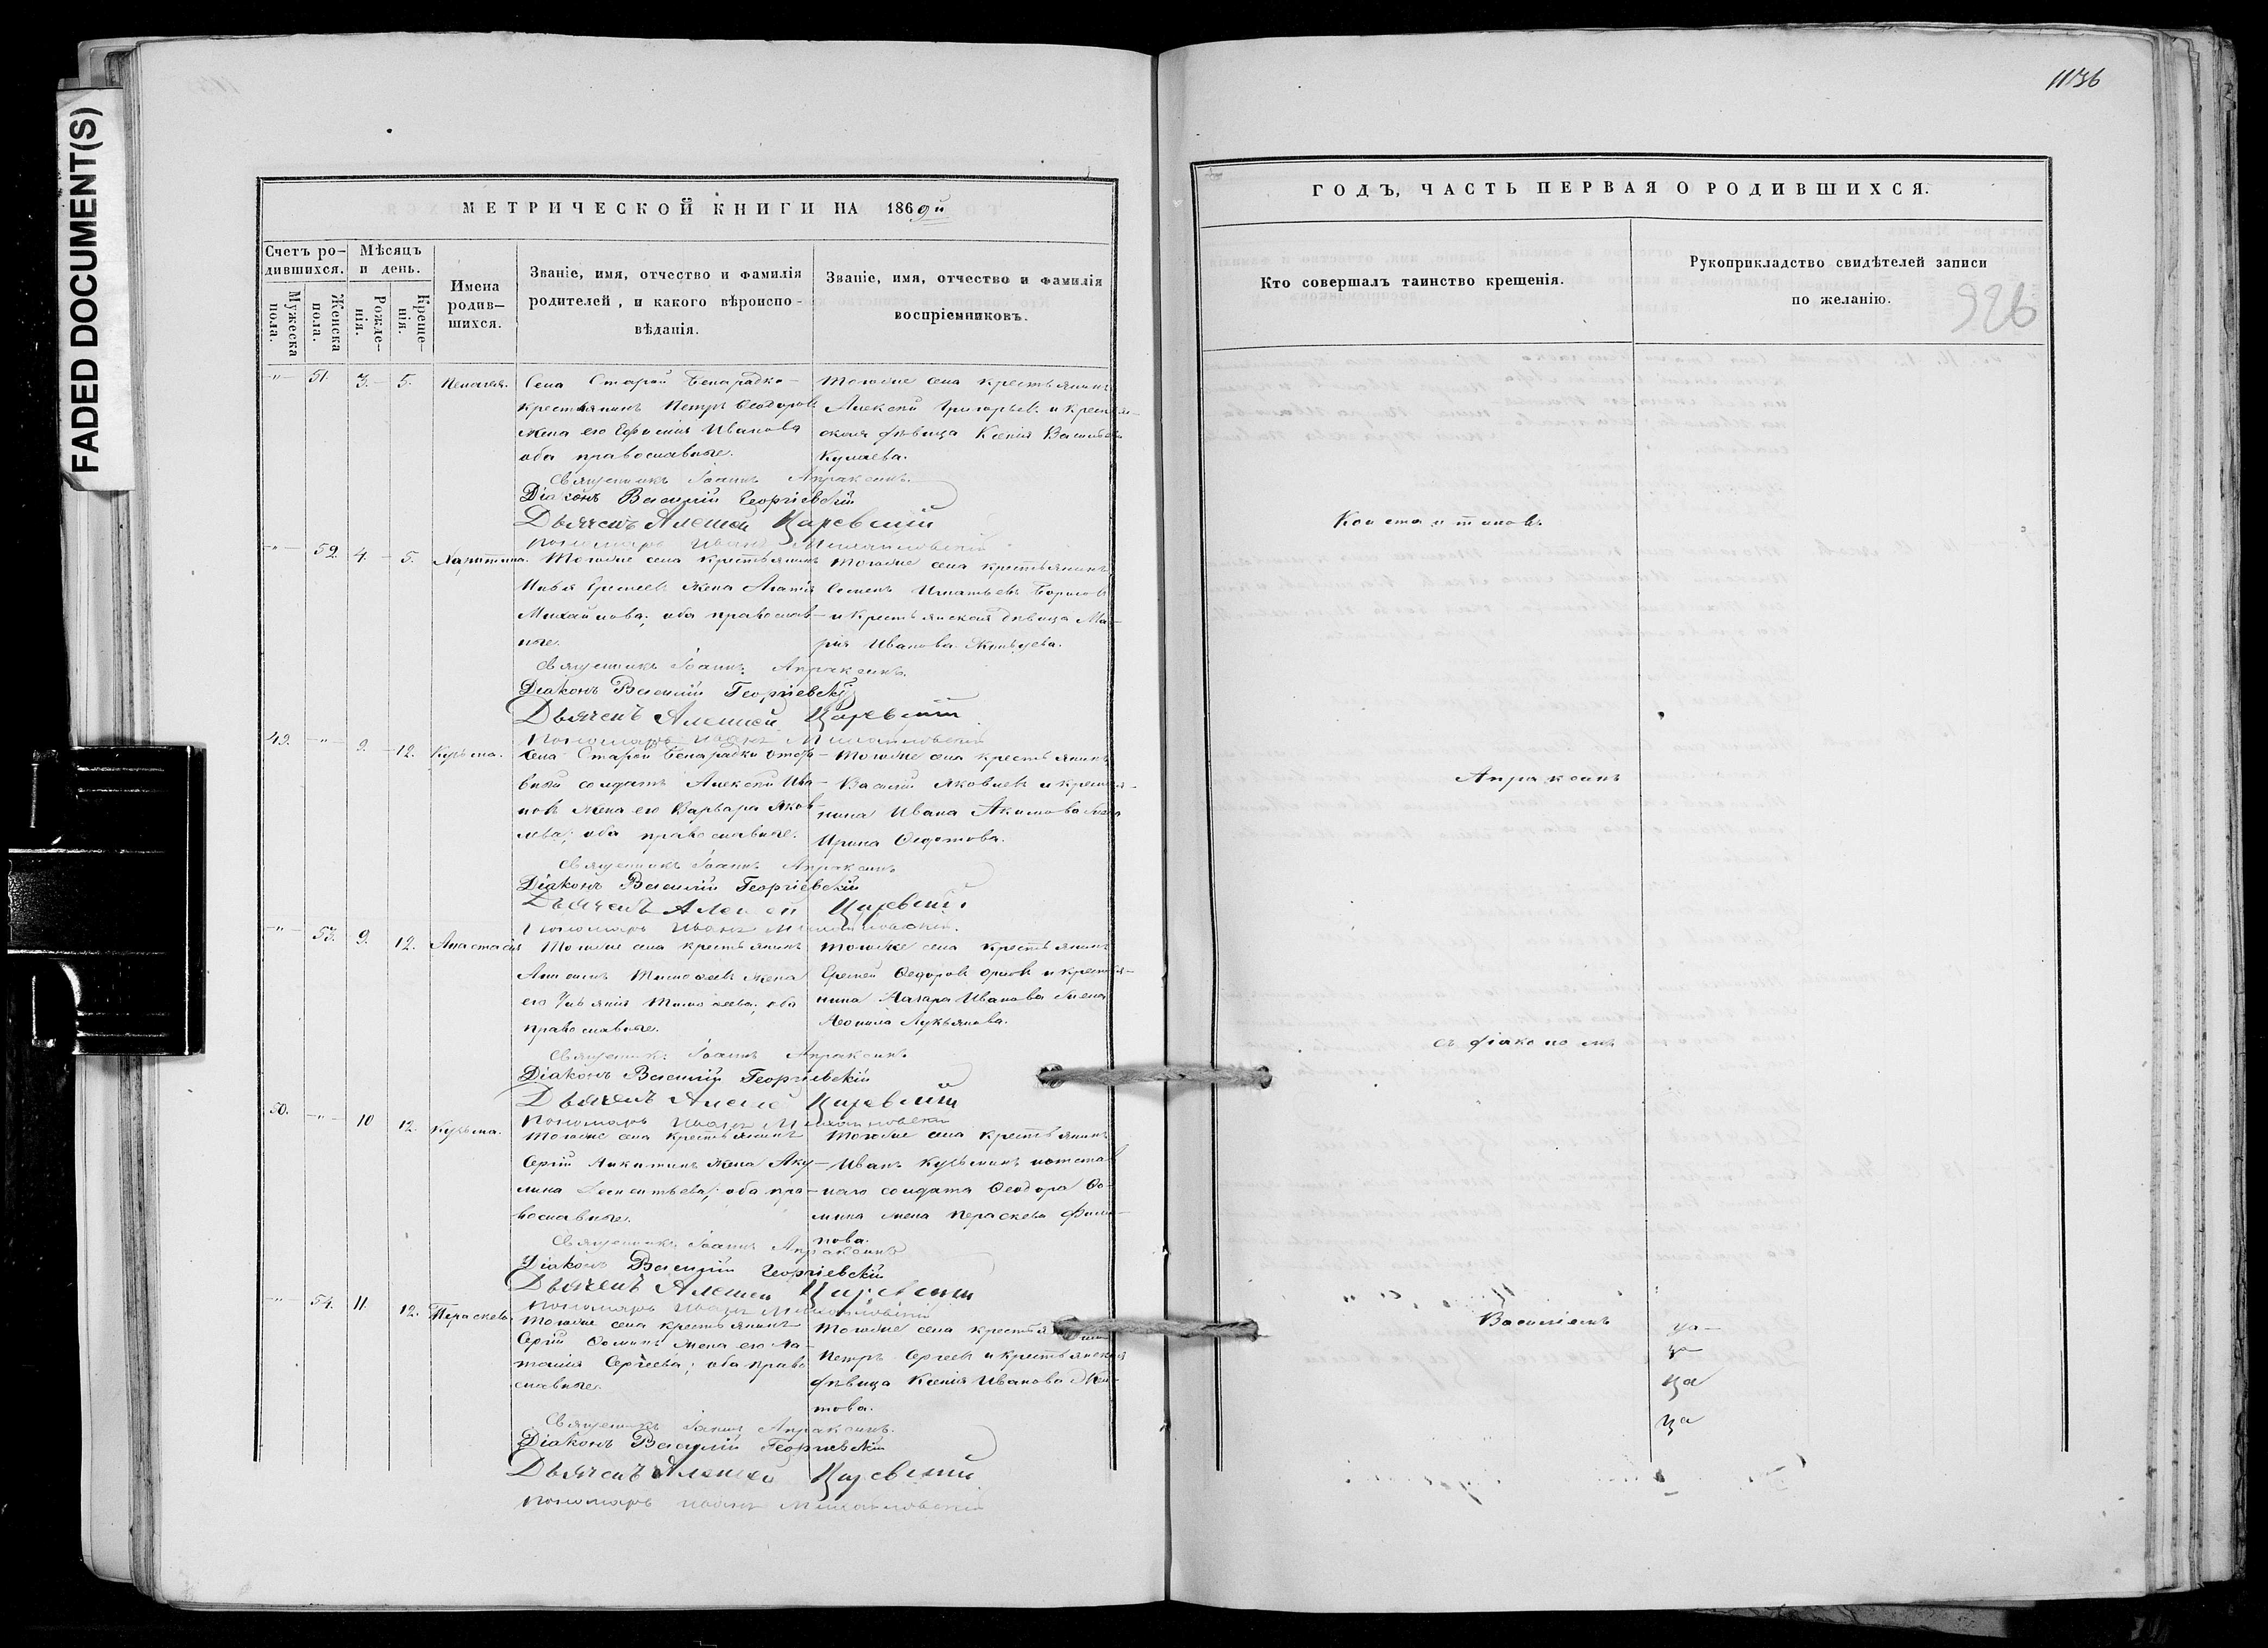 FADED DOCUMENT(S)
1136
МЕТРИЧЕСКОЙ КНИГИ НА 1869й
ГОДЪ, ЧАСТЬ ПЕРВАЯ О РОДИВШИХСЯ.
Счетъ ро-
дившихся.
Мужеска
пола.
Женска
пола.
Мѣсяцъ
и день.
Рожде-
нія.
Креще-
нія.
Имена
родив-
шихся.
Званіе, имя, отчество и фамилія
родителей, и какого вѣроиспо-
вѣданія.
Званіе, имя, отчество и фамилія
воспріемниковъ.
Кто совершалъ таинство крещенія.
Рукоприкладство свидѣтелей записи
по желанію.
926
-"- 51. 3. 5. Пелагея.
Села Старой
крестьянинъ Петръ Ѳеодоровъ
жена его Ефимія Иванова
оба православные.
Тогоже села крестьянинъ
Алексѣй Григорьевъ и крестьян-
ская дѣвица Ксенія Васильева
Кулаева.
Священникъ Іоаннъ Апраксинъ.
Діаконъ Василій Георгіевскій
Дьячекъ Алексей Царевскій
Пономарь Иванъ Михайловскій
-"- 52. 4. 5. Харитина.
Тогоже села крестьянинъ
Илья Еремеевъ жена Агафія
Михайлова; оба православ-
ные.
Тогоже села крестьянинъ
Семенъ Игнатьевъ Борисовъ
и крестьянская дѣвица Ма-
рія Иванова
Священникъ Іоаннъ Апраксинъ.
Діаконъ Василій Георгіевскій
Дьячекъ Алексей Царевскій
Пономарь Иванъ Михайловскій
49. -"- 9. 12. Кузьма.
Села Старой отста-
вной солдатъ Алексѣй Ива-
новъ жена его Варвара Яков-
лева; оба православные.
Тогоже села крестьянинъ
Василій Яковлевъ и крестья-
нина Ивана Акимова жена
Ирина Ѳедотова.
Священникъ Іоаннъ Апраксинъ
Діаконъ Василій Георгіевскій
Дьячекъ Алексей Царевскій
Пономарь Иванъ Михайловскій.
-"- 53. 9. 12. Анастасія
Тогоже села крестьянинъ
Тимофеевъ жена
его Ульянія Тимофеева; оба
православные.
Тогоже села крестьянинъ
Еремей Ѳедоровъ Орловъ и крестья-
нина Лазаря Иванова жена
Леонила Лукьянова.
Священникъ Іоаннъ Апраксинъ.
Діаконъ Василій Георгіевскій
Дьячекъ Алексей Царевскій
Пономарь Иванъ Михайловскій
50. -"- 10 12. Кузьма.
Тогоже села крестьянинъ
Сергій Никитинъ жена Аку-
лина оба пра-
вославные.
Тогоже села крестьянинъ
Иванъ Кузьминъ и отстав-
наго солдата Ѳеодора Ѳо-
мина жена Параскева Филип-
пова.
Священникъ Іоаннъ Апраксинъ
Діаконъ Василій Георгіевскій
Дьячекъ Алексей Царевскій
Пономарь Иванъ Михайловскій
-"- 54. 11. 12. Параскева.
Тогоже села крестьянинъ
Сергій Ѳоминъ жена его На-
талія Сергѣева; оба право-
славные.
Тогоже села крестьянинъ
Петръ Сергеевъ и крестьянская
дѣвица Ксенія Иванова
това.
Священникъ Іоаннъ Апраксинъ.
Діаконъ Василій Георгіевскій
Дьячекъ Алексей Царевскій
Пономарь Иванъ Михайловскій
Апраксинъ
съ діакономъ
Василіемъ